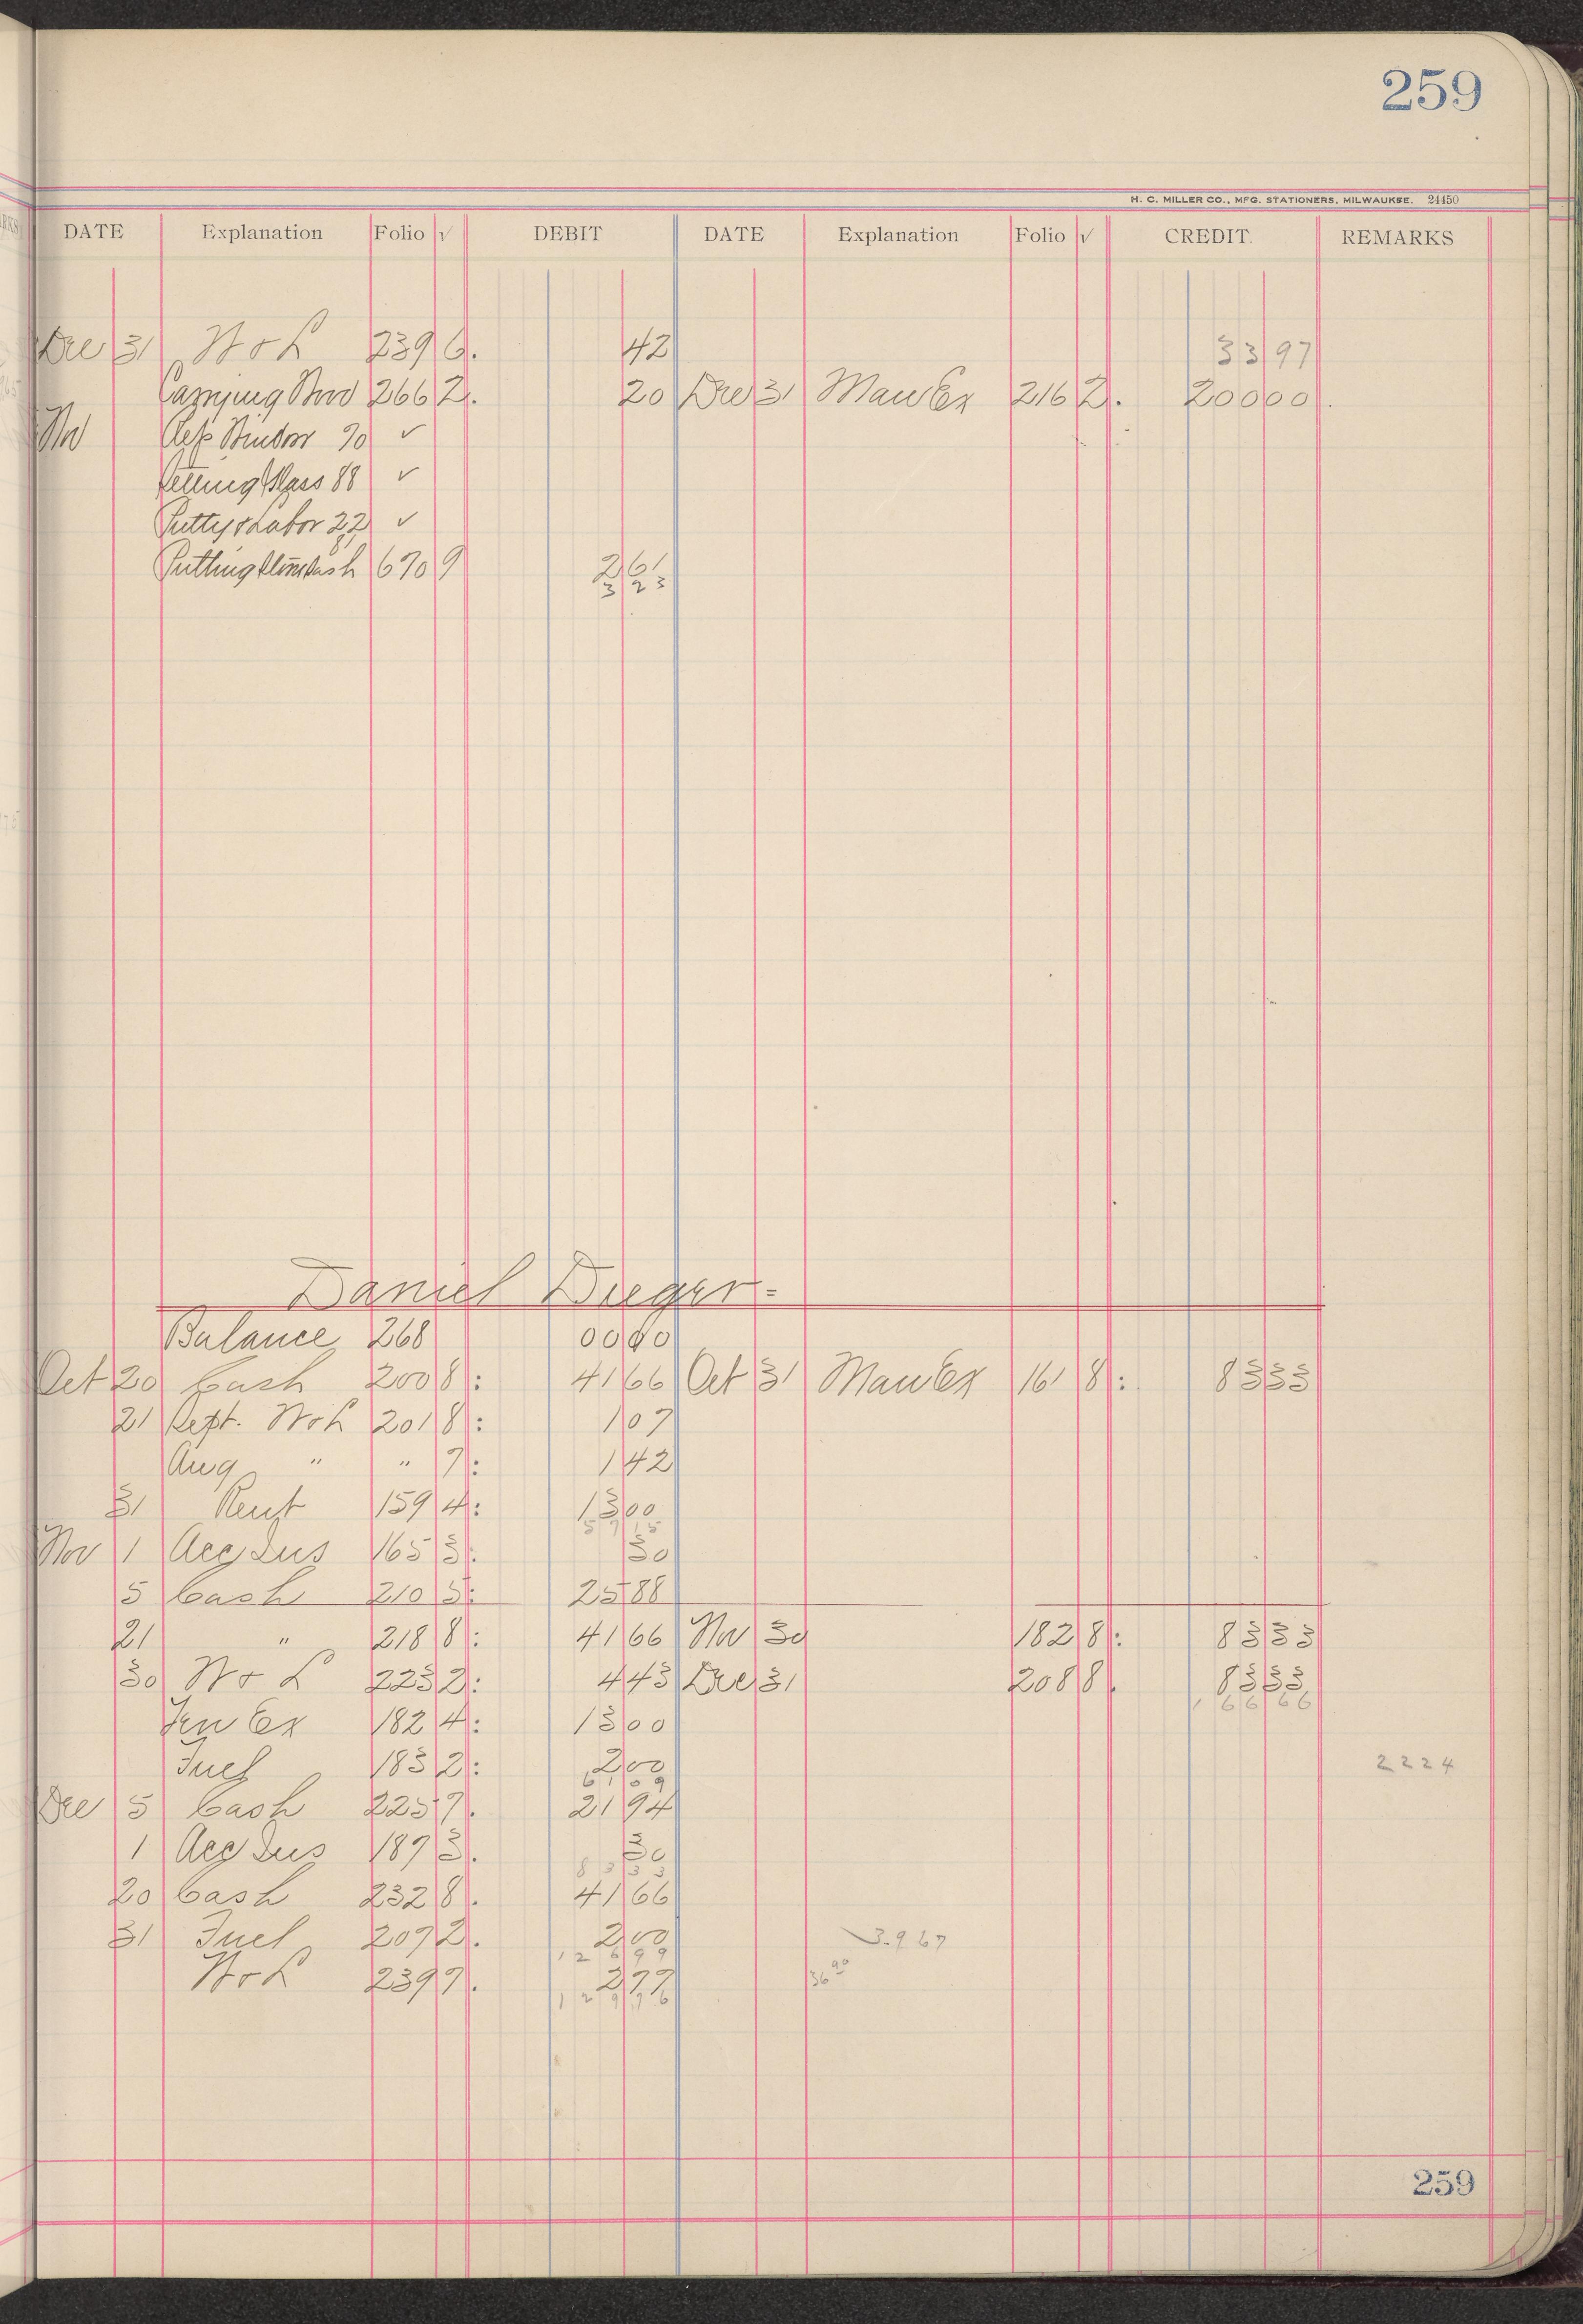 259
H. C. MILLER CO., MFG. STATIONERS, MILWAUKEE. 24450
DATE Explanation Folio √ DEBIT DATE Explanation Folio √ CREDIT. REMARKS
Dec 31 W & L 239 6. 42 33 97
Carrying 266 2. 20 Dec 31 Man Ex 216 2. 200 00
Nov 70 ✓
Setting Glass 88 ✓
Putty & Labor 22 ✓
Putting 670 9 2 61
3 23
Daniel Dieger
Balance 268 00 00
Oct 20 Cash 200 8: 41 66 Oct 31 Man Ex 161 8: 83 33
21 Sept. W & L 201 8: 1 07
Aug " " 7: 1 42
31 Rent 159 4: 13 00
57 15
Nov 1 Acc Ins 165 3: 30
5 Cash 210 5: 25 88
21 " 218 8: 41 66 Nov 30 182 8: 83 33
30 W & L 223 2: 4 43 Dec 31 208 8. 83 33
166 66
Ten Ex 182 4: 13 00
Fuel 183 2: 2 00
61 09
2224
Dec 5 Cash 225 7. 21 94
1 Acc Ins 187 3. 30
83 33
20 Cash 232 8. 41 66
31 Fuel 209 2. 2 00 3967
126 99
W & L 239 7. 2 77 36 90
129 76
259